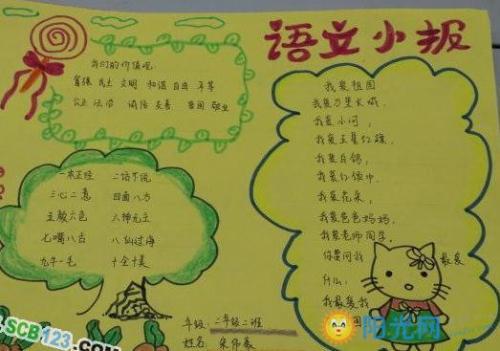 语文小报
我们的价值观
富强 民主 文明 和谐 自由 平等
公正 法治 诚信 友善 爱国 敬业
一本正经 二话不说
三心二意 四面八方
五颜六色 六神无主
七嘴八舌 八仙过海
九牛一毛 十全十美
我爱祖国
我爱万里长城,
我爱小河,
我爱五星红旗,
我爱红领巾
我爱花朵,
我爱爸爸妈妈,
我爱老师同学,
你要问我 最爱
什么,
我最爱我
国
年级: 二年级二班
姓名:
SCB123.COM
阳光网